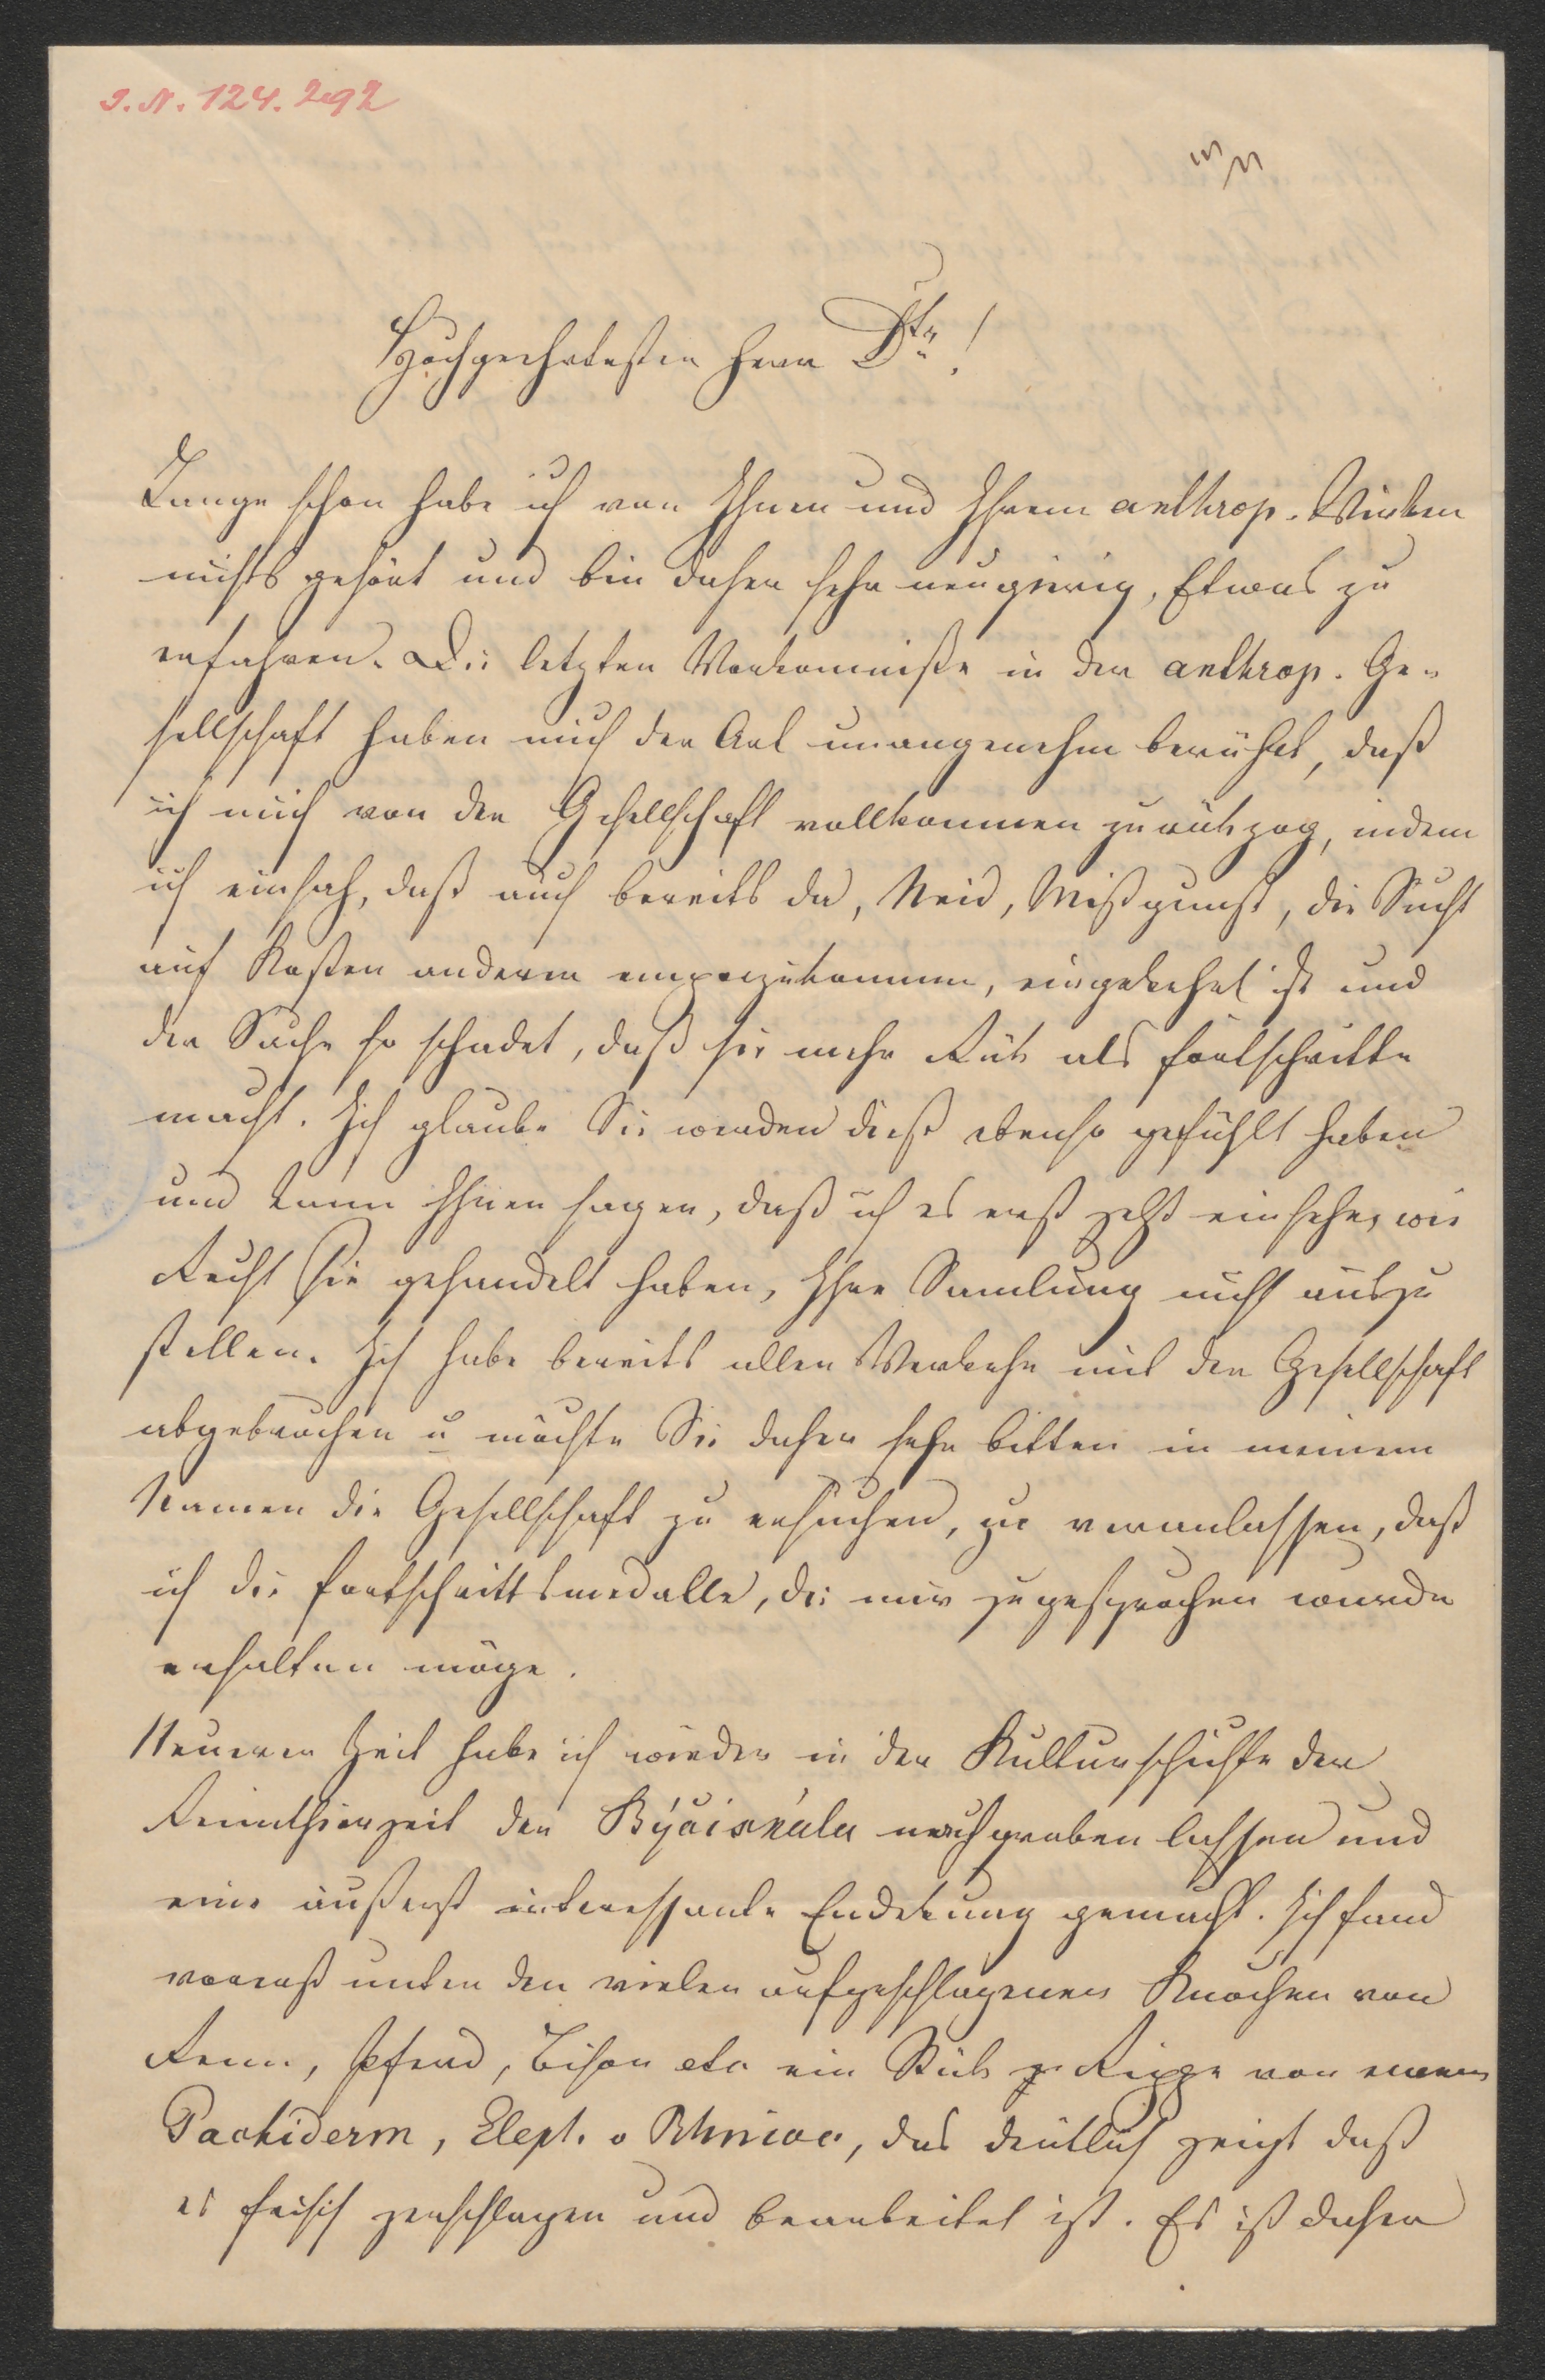 I. N. 124.292
Hochgeehrtester Herr Dtr!
Lange schon habe ich von Ihnen und Ihrem anthrop. Wirken
nichts gehört und bin daher sehr neugierig, Etwas zu
erfahren. Die letzten Vorkomniße in der anthrop. Ge-
sellschaft haben mich der Art unangenehm berührt, daß
ich mich von der Gesellschaft vollkommen zurükzog, indem
ich einsah, daß auch bereits da, Neid, Mißgunst, die Sucht
auf Kosten anderer emporzukommen, eingekehrt ist und
der Sache so schadet, daß sie mehr Rük als Fortschritte
macht. Ich glaube Sie werden dieß ebenso gefühlt haben
und kann Ihnen sagen, daß ich es erst jetzt einsehe, wie
Recht Sie gehandelt haben, Ihre Samlung nicht auszu
stellen. Ich habe bereits allen Verkehr mit der Gesellschaft
abgebrochen u möchte Sie daher sehr bitten in meinem
Namen die Gesellschaft zu ersuchen, zu veranlassen, daß
ich die Fortschrittsmedalle, die mir zugesprochen wurde
erhalten möge.
Neuerer Zeit habe ich wieder in der Kulturschichte der
Rennthierzeit der Býčiskála nachgraben lassen und
eine äußerst interessante Endekung gemacht. Ich fand
vorerst unter den vielen aufgeschlagenen Knochen von
Renn, Pferd, Bison etc ein Stük Rippe von einem
Pachiderm, Eleph. o Rhinoc., das deutlich zeigt daß
es frisch zerschlagen und bearbeitet ist. Es ist daher